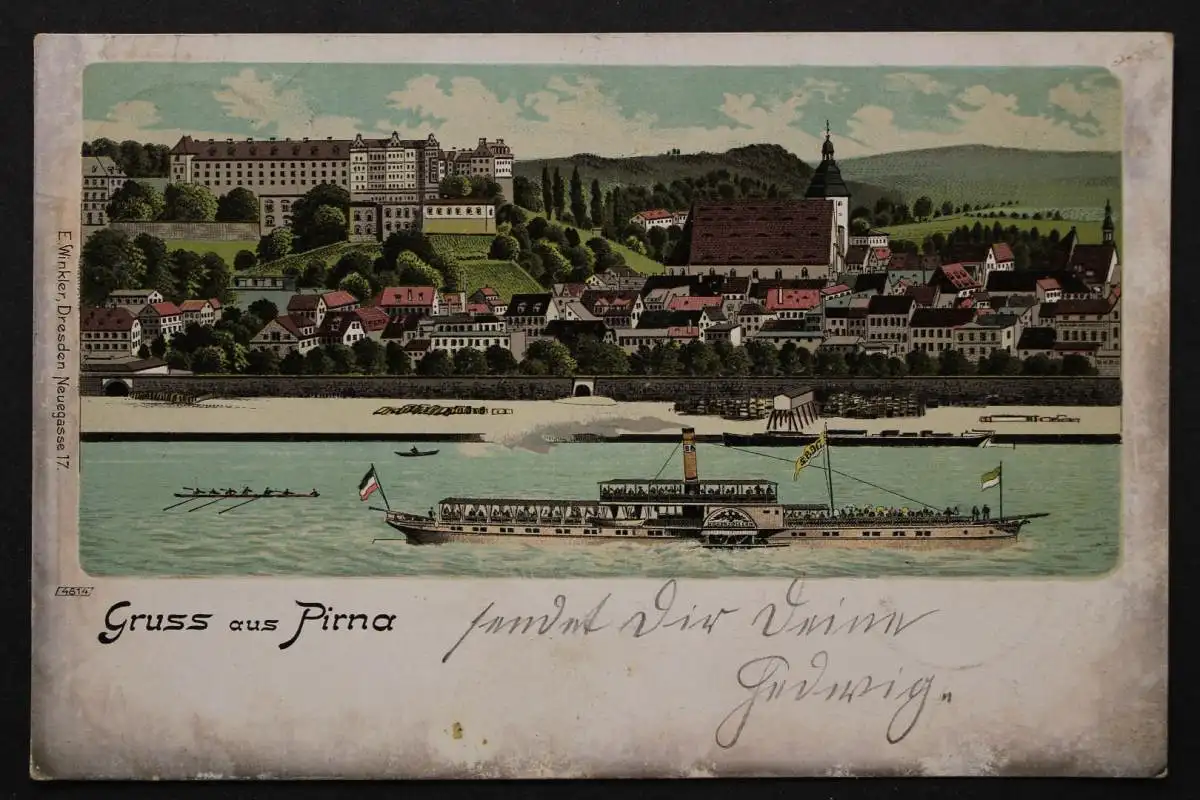 E. Winkler, Dresden Neuegasse 17.
4614
Gruss aus Pirna
sendet Dir Deine
Hedwig.